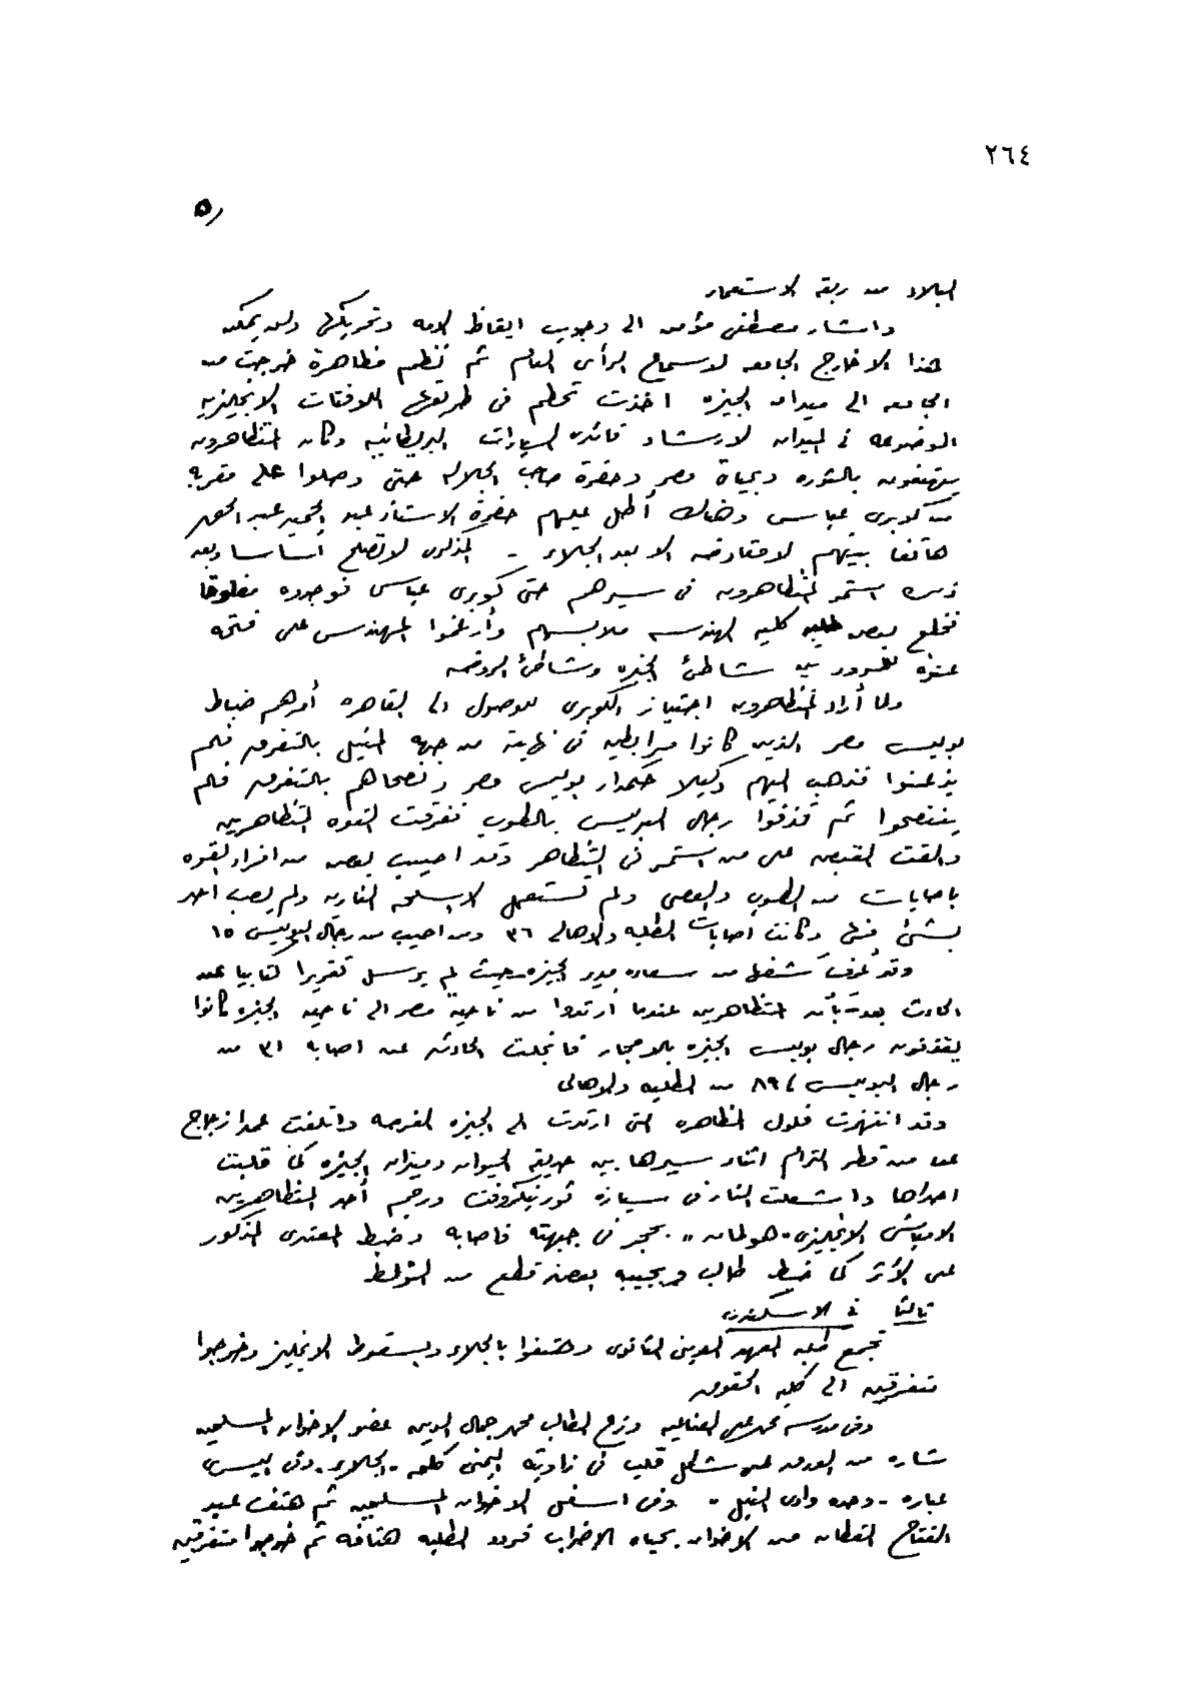 ٢٦٤
٥
البلاد من ربقة الاستعمار
وأشار مصطفى مؤمن الى وجوب ايقاظ الامه وتحريكها وليس يمكن
هذا الا خارج الجامعه لاسماع الرأى العام ثم نظم مظاهرة خرجت من
الجامعه الى ميدان الجيزه اخذت تحطم فى طريقها اللافتات الانجليزيه
الموضوعه فى الميدان لارشاد قائدى السيارات البريطانيه وكان المتظاهرون
يهتفون بالثوره وبحياة مصر وحضرة صاحب الجلاله حتى وصلوا على مقربه
من كوبرى عباس وهناك أطل عليهم حضرة الاستاذ عبد الحميد عبد الحق
هاتفا بينهم لا مفاوضه الا بعد الجلاء - المذكره لا تصلح أساسا وبعد
ذلك استمر المتظاهرون فى سيرهم حتى كوبرى عباس فوجدوه مفتوحا
فخلع بعض طلبه كليه الهندسه ملابسهم وأرغموا المهندس على فتحه
عنوه للمرور بين شاطئ الجيزه وشاطئ الروضه
ولما أراد المتظاهرون اجتياز الكوبرى للوصول الى القاهره أمرهم ضباط
بوليس مصر الذين كانوا مرابطين فى نهايته من جهه المنيل بالتفرق فلم
يذعنوا فذهب اليهم وكيلا حكمدار بوليس مصر ونصحاهم بالتفرق فلم
ينتصحوا ثم قذفوا رجال البوليس بالطوب ففرقت القوه المتظاهرين
والقت القبض على من استمر فى التظاهر وقد اصيب بعض من افراد القوه
باصابات من الطوب والعصى ولم تستعمل الاسلحه الناريه ولم يصب احد
بشئ منها وكانت اصابات الطلبه والاهالى ٣٦ ومن اصيب من رجال البوليس ١٥
وقد عُرف شفهيا من سعاده مدير الجيزه - حيث لم يرسل تقريرا كتابيا عن
الحادث بعد - بأن المتظاهرين عندما أرتدوا من ناحية مصر الى ناحيه الجيزه كانوا
يقذفون رجال بوليس الجيزه بالاحجار فانجلت الحادثه عن اصابه ٣١ من
رجال البوليس، ٨٩ من الطلبه والاهالى
وقد انتهزت فلول المظاهره التى ارتدت الى الجيزه الفرصه واتلفت عمدا زجاج
عدد من قطر الترام اثناء سيرها بين حديقه الحيوان وميدان الجيزه كما قلبت
احداها واشعلت النار فى سياره تورنيكروفت ورجم أحد المتظاهرين
الامباشى الانجليزى "هولمان" بحجر فى جبهته فاصابه وضبط المعتدى المذكور
على الأثر كما ضبط طالب وبجيبه بعض قطع من الزلط
ثالثا فى الاسكندريه
تجمع طلبه المعهد الدينى الثانوى وهتفوا بالجلاء وبسقوط الانجليز وخرجوا
متفرقين الى كليه الحقوق
وفى مدرسه محمد على الصناعيه وزع الطالب محمد جمال الدين عضو الاخوان المسلمين
شاره من الورق على شكل قلب فى زاويته اليمنى كلمه "الجلاء" وفى اليسرى
عباره "وحده وادى النيل" وفى اسفل الاخوان المسلمين ثم هتف عبد
الفتاح القطان من الاخوان بحياه الاضراب فردد الطلبه هتافه ثم خرجوا متفرقين